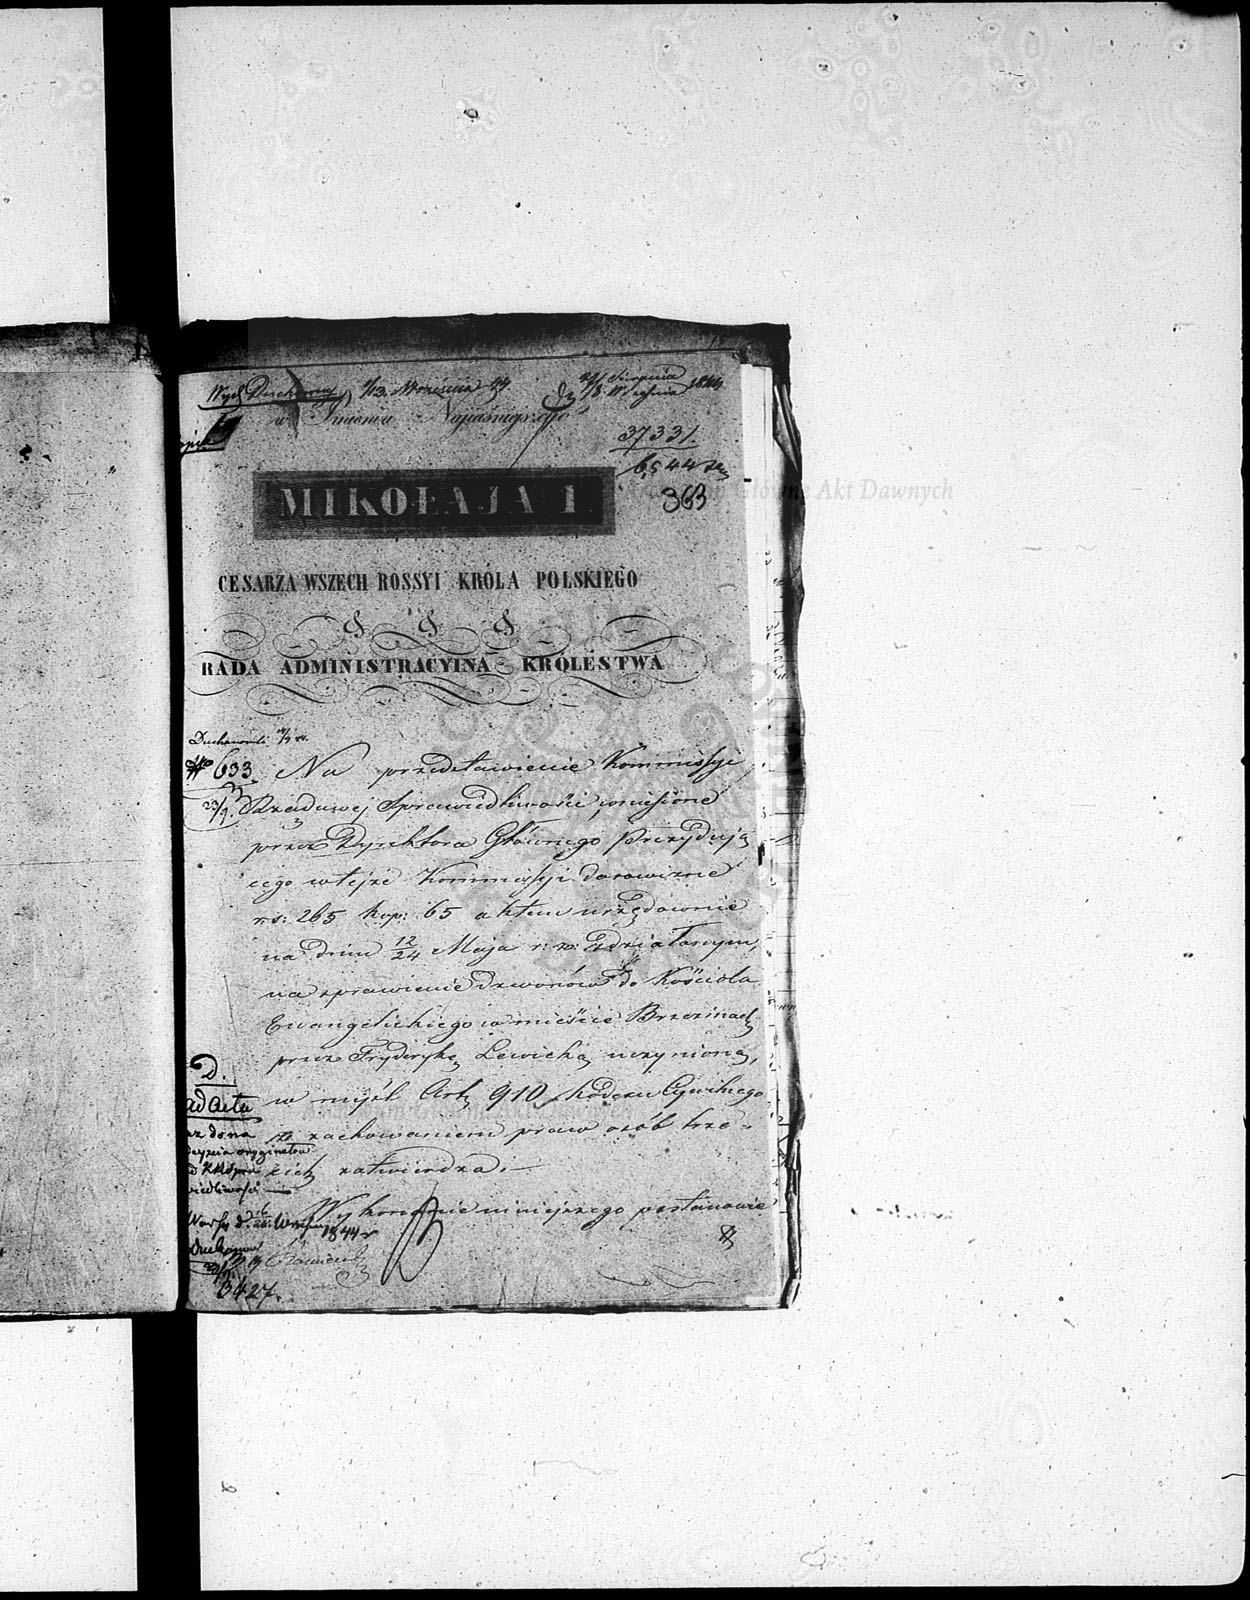 Wydz Duchowny 1/13 Września 44
d 22/3 Sierpnia Września 1844
w Imieniu Najjaśniejszego
37331.
6544
363
MIKOŁAJA I
Archiwum Główne Akt Dawnych
CESARZA WSZECH ROSSYI KRÓLA POLSKIEGO
RADA ADMINISTRACYINA KRÓLESTWA
№ 633. Na przedstawienie Kommissyi
Rządowej Sprawiedliwości wniesione
przez Dyrektora Głównego Prezydują
cego w tejże Kommissyi darowiznę
r.s: 265 kop: 65 aktem urzędownie
na dniu 12/24 Maja r: z: zdziałanym,
na sprawienie dzwonów do Kościoła
Ewangelickiego w mieście Brzezinach
przez Fryderykę Lewicką uczynioną,
w myśl Arty 910 Kodexu Cywilnego
z zachowaniem praw osób trze-
cich zatwierdza.
Wykonanie niniejszego postanowie
D.
ad acta
1844 r
3427.